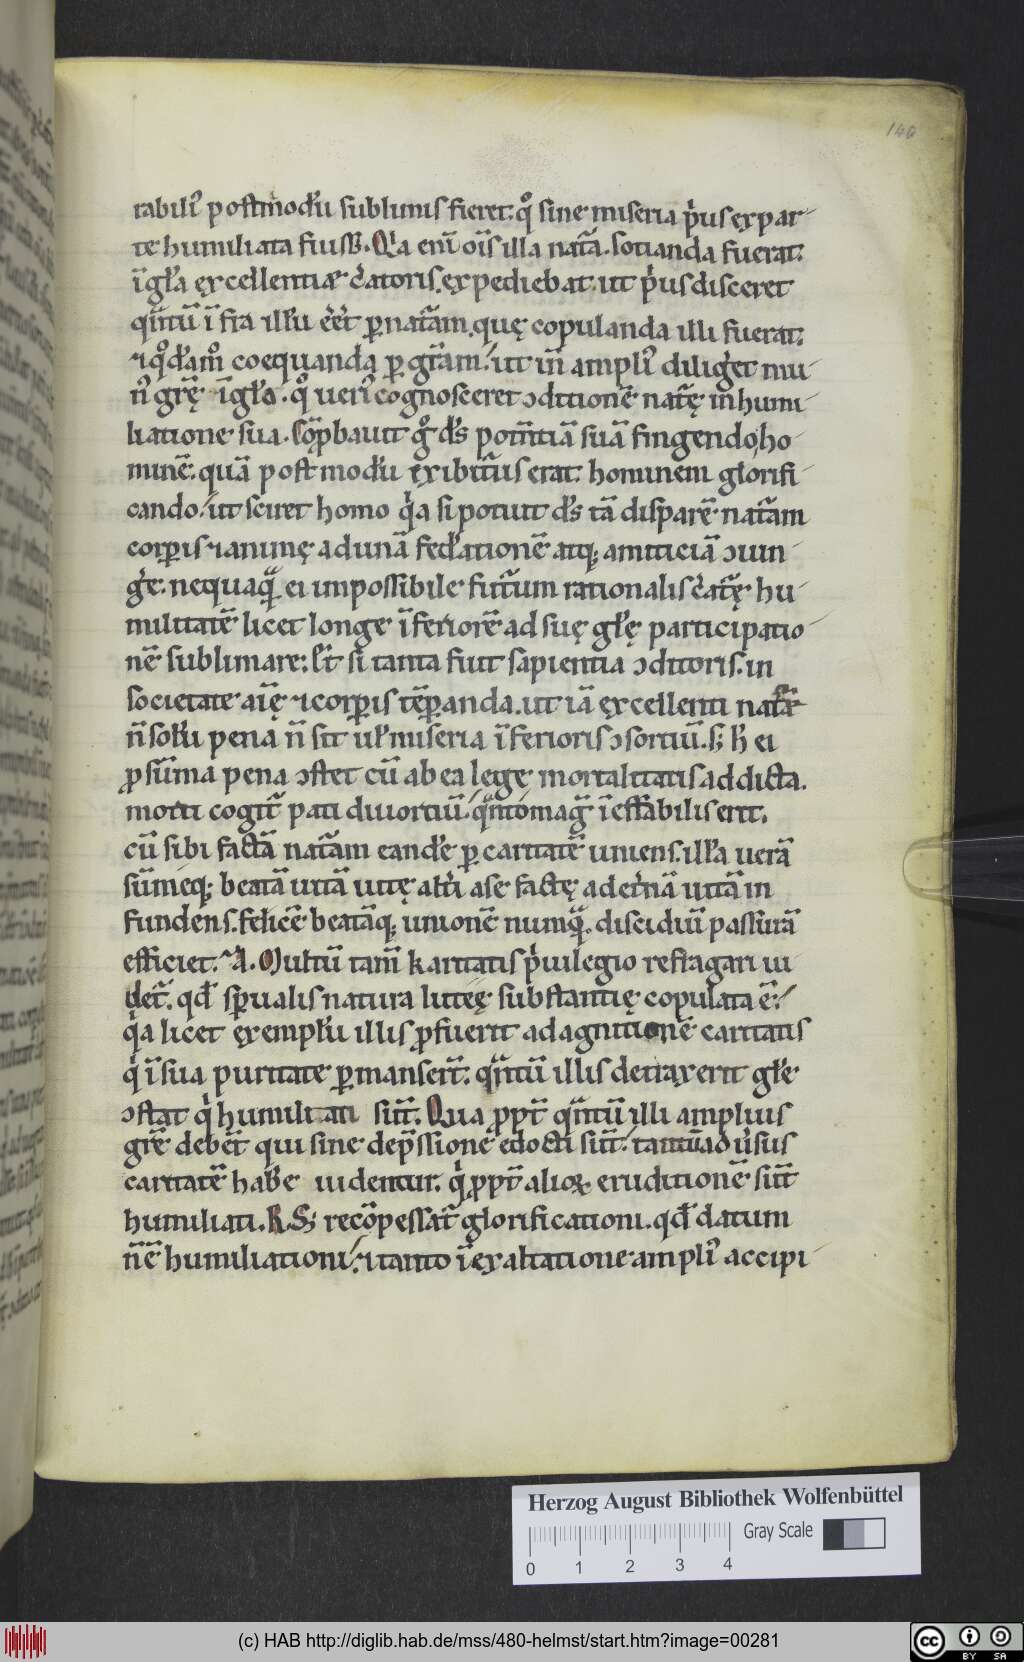 140
rabiliꝰ postmodū sublimis fieret. qͦ sine miseria pͥus ex par-
te humiliata fuiss&. Qͥa enī oīs illa natᷓa. sotianda fuerat.
ī gła excellentiæ cͬatoris. expediebat. ut pͥus disceret
qᷓntū ī fra illū eēt ꝑ natᷓam. quę copulanda illi fuerat.
⁊ qͦdāmͦ coequanda ꝑ grᷓam. ut in̄ ampliꝰ diligͬet mu-
nꝰ grᷓę ī gła. qͦ ueriꝰ cognosceret ↄditionē natᷓę in humi-
liatione sua. Cōꝓbauit gͦ ds̄ potn̄tiā suā fingendo ho-
minē. quā post modū exibitᷓus erat hominem glorifi-
cando. ut sciret homo qͥa si potuit ds̄ tā disparē natᷓam
corꝑis ⁊ animę ad unā fed̄ationē atq; amiticiā ↄiun-
gͬe. nequaqᷓ ei impossibile futᷓum rationalis cͬatᷓę hu-
militatē licet longe īferiorē ad suę głę participatio-
nē sublimare. Et̄ si tanta fuit sapientia ↄditoris. in
societate aīę ⁊ corꝑis tēꝑanda. ut iā excellenti natᷓę
n̄ solū pena n̄ sit uł miseria īferioris ↄsortiū. s; h̄ ei
ꝓ sūma pena ↄstet cū ab ea lege mortalitatis addicta.
morti cogitᷓ pati diuortiū. qᷓnto maḡ īeffabilis erit.
cū sibi factā natᷓam eandē ꝑ caritatē uniens. illa uerā
sūmeq; beatā uitā uitę altͥi a se factę ad etͬnā uitā in
fundens. felicē beatāq; unionē numqᷓ discidiū passurā
efficiet. A. Multū tam̄ karitatis pͥuilegio refragari ui-
detᷓ. qd̄ sꝑualis natura luteę substantię copulata ē.
qͥa licet exemplū illis ꝓfuerit ad agnitionē caritatis
qͥ ī sua puritate ꝑmanserᷓt. qᷓntū illis detraxerit głę
ↄstat qͥ humiliati sūt. Quia ꝓpt̄ qᷓntū illi amplius
grē debēt qui sine depͬssione edocti sūt. tantū adūsus
caritatē habͬe uidentur. qͥ ꝓpt̄ alioꝝ eruditionē sūt
humiliati. R. S; recōpessatᷓ glorificationi. qd̄ datum
n̄ ē humiliationi. ⁊ tanto ī exaltatione ampliꝰ accipi-
Herzog August Bibliothek Wolfenbüttel
Gray Scale
0 1 2 3 4
(c) HAB http://diglib.hab.de/mss/480-helmst/start.htm?image=00281
cc BY SA